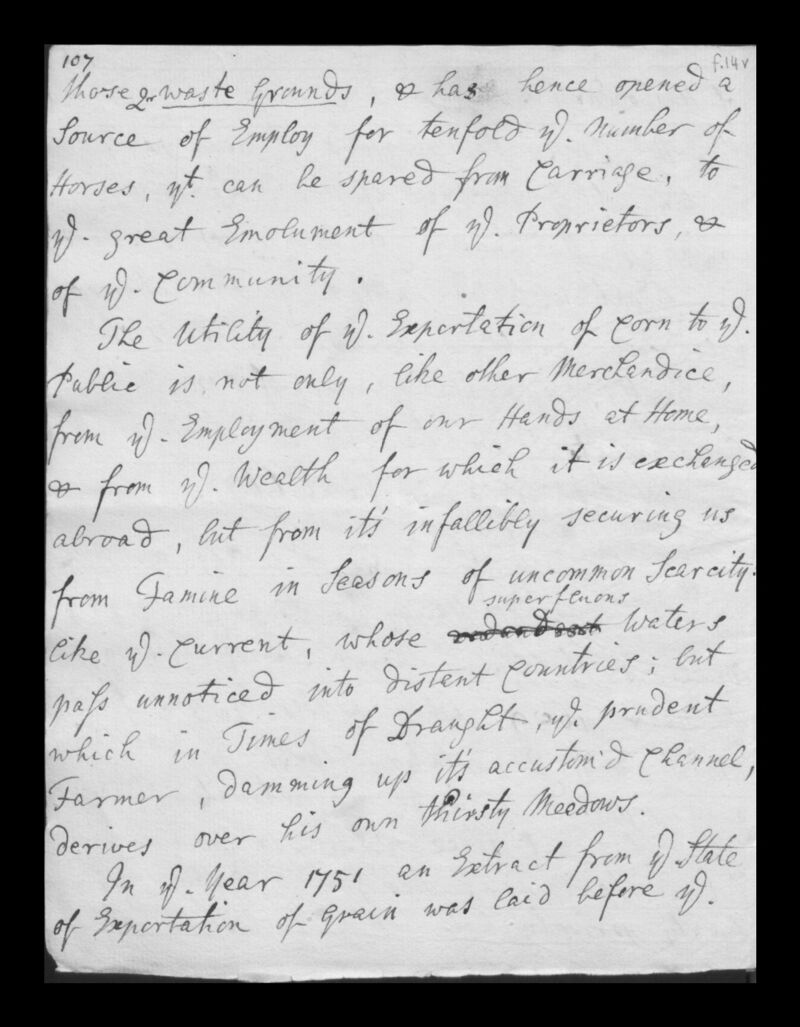 107
f.14v
those waste Grounds, & has hence opened a
Source of Employ for tenfold ye. Number of
Horses, yt. can be spared from Carriage, to
ye. great Emolument of ye. Proprietors, &
of ye. Community.
The Utility of ye. Exportation of Corn to ye.
Public is not only, like other Merchandice,
from ye. Employment of our Hands at Home,
& from ye. Wealth for which it is exchanged
abroad, but from it's infallibly securing us
from Famine in Seasons of uncommon Scarcity.
superfluous
like ye. Current, whose Waters
pass unnoticed into distent Countries; but
which in Times of Draught, ye. prudent
Farmer, damming up it's accustom'd Channel,
derives over his own thirsty Meadows.
In ye. Year 1751 an Extract from ye. State
of Exportation of Grain was laid before ye.